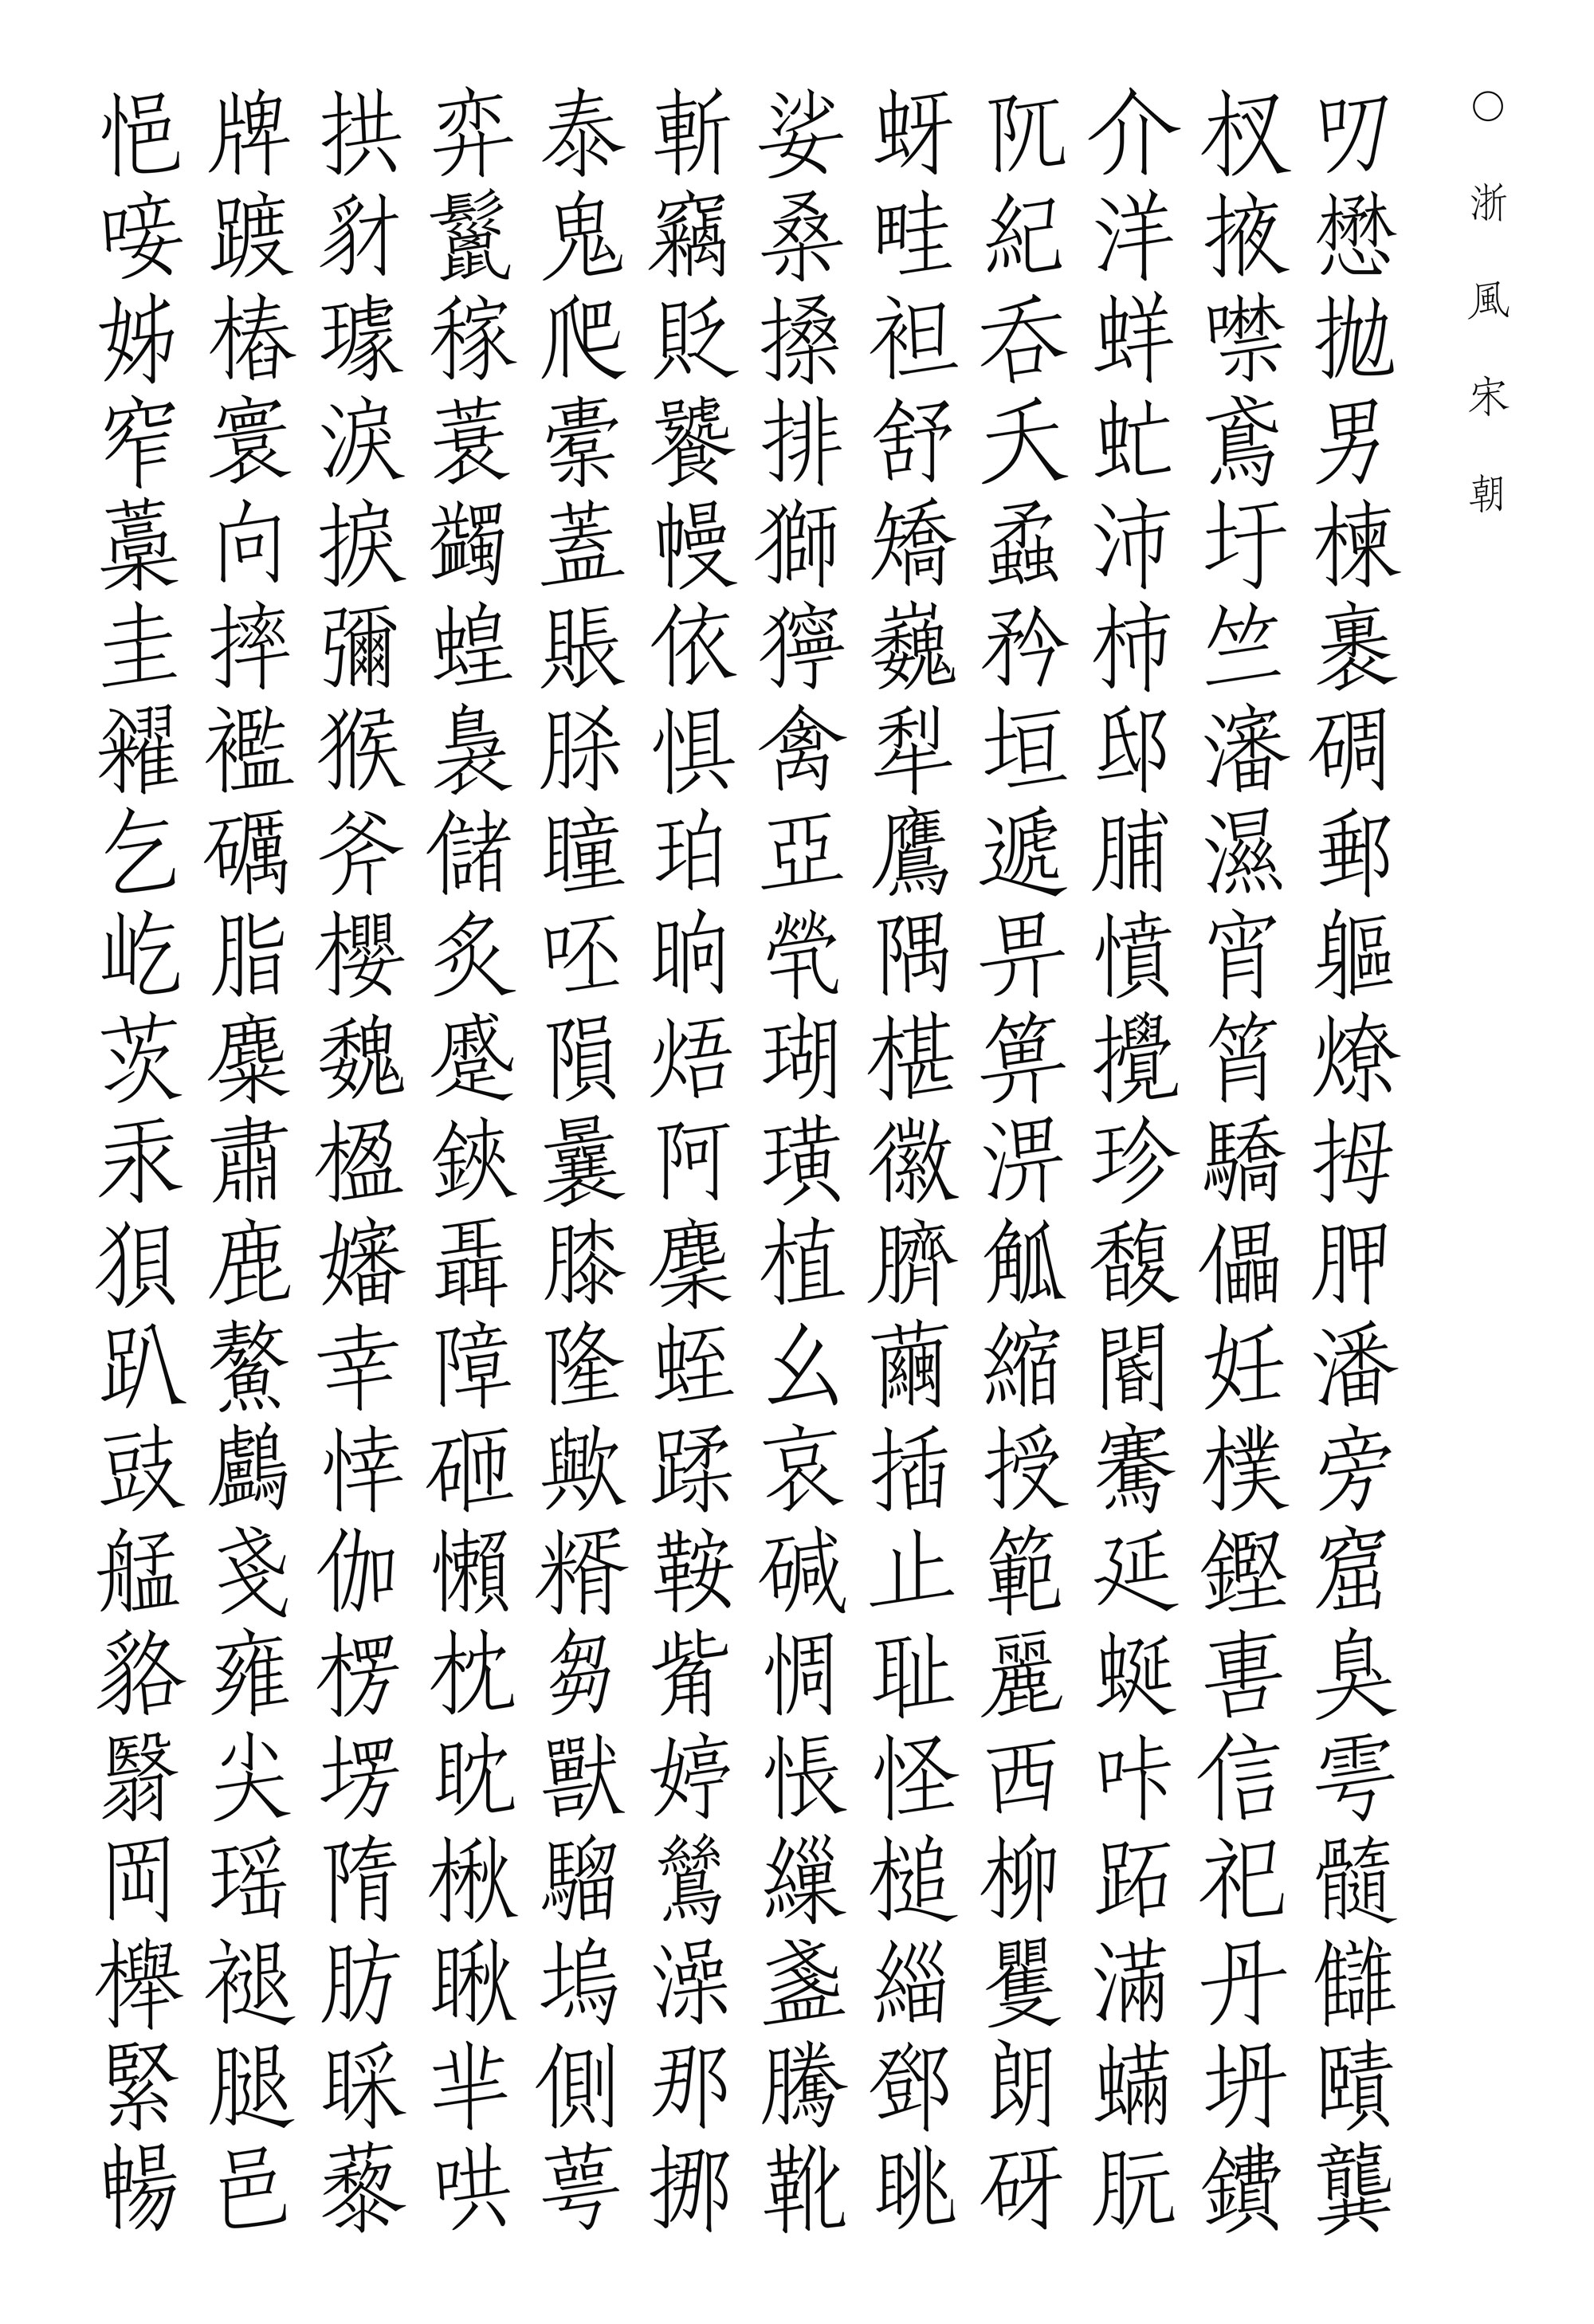 〇浙風宋朝
叨懋拋男楝裹碉郵軀燎拇胛潘旁窟臭雩髓讎賾龔
杈掖噤鳶圩竺瀋濕宵筲驕儡妊樸鏗軎信祀丹坍鐨
介洋蛘虻沛柿邸脯憤攪珍馥閽騫延蜒咔跖滿蟎朊
阮紀吞夭蟊矜垣遞畀箅淠觚縮授範麗西柳矍朗砑
蚜畦袒舒矯巍犁鷹隅椹徽臍繭插止耻怪槌緇鄧眺
娑桑搡排獅獰禽亞煢瑚璜植幺哀碱惆悵繅盞騰靴
斬竊貶饕幔依惧珀晌焐阿麇蛭蹂鞍觜婷鶯澡那挪
泰鬼爬橐蓋賬脎瞳呸隕曩膝隆歟糈芻獸騮塢側萼
弈鬣稼蓑蠲蝗裊儲炙蹙鋏聶障砸懶枕眈楸瞅羋哄
拱豺璩淚捩彌猴斧櫻魏楹嬸幸悻伽楞塄隋肪睬藜
牌踱樁寰向摔襤礪脂麋肅鹿鰲鸕戔雍尖瑤褪腿邑
悒唼姊窄藁圭糶乞屹茨汞狽趴豉艋貉翳岡櫸緊暢